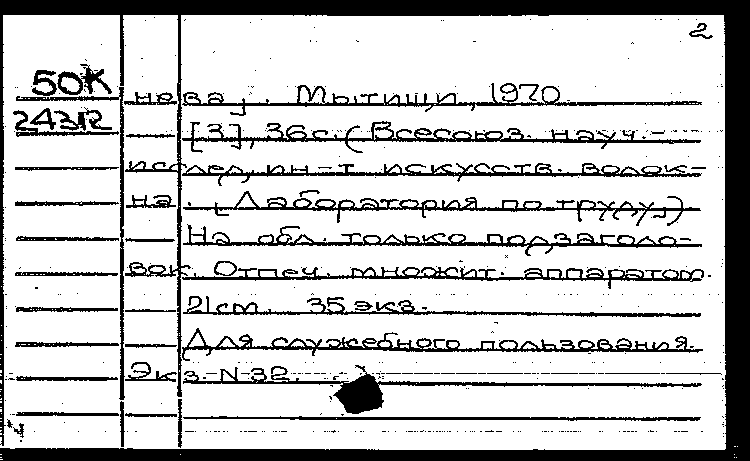 2
50К
нева]. Мытищи, 1970
24312
[3], 36с. (Всесоюз. науч.-
исслед, ин-т искусств. волок-
на. [Лаборатория по труду])
На обл. только подзаголо-
вок. Отпеч. множит. аппаратом.
21cm. 35 экз.
Для служебного пользования.
Экз. N 32.